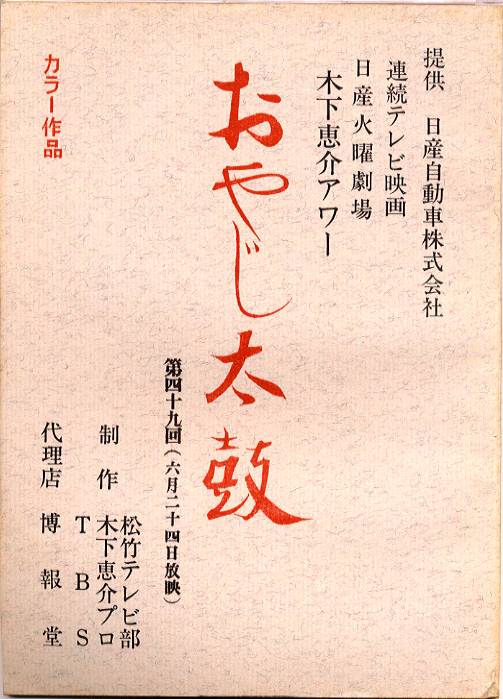 提供　日産自動車株式会社
連続テレビ映画
日産火曜劇場
木下恵介アワー
おやじ太鼓
第四十九回（六月二十四日放映）
カラー作品
制作　松竹テレビ部
木下恵介プロ
TBS
代理店　博報堂